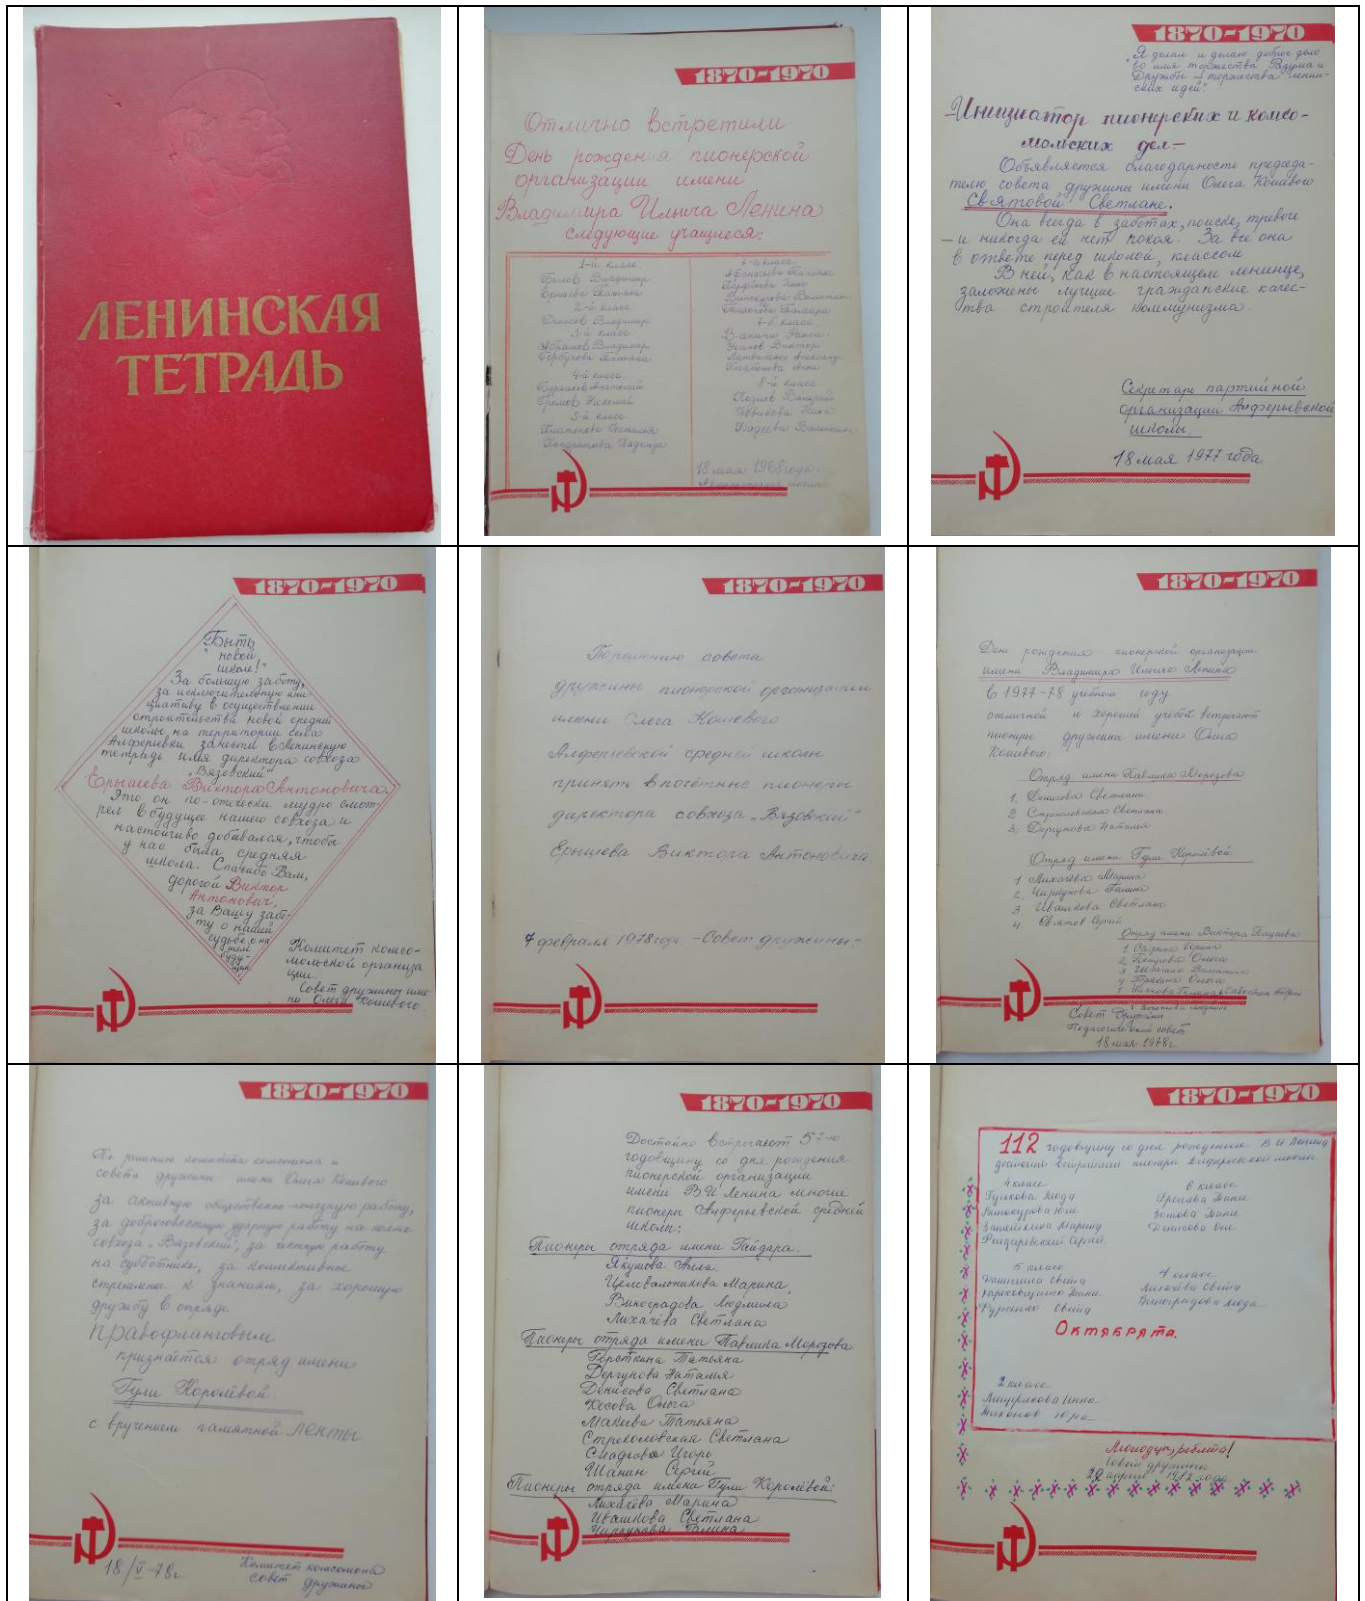 ЛЕНИНСКАЯ
ТЕТРАДЬ
1870-1970
Отлично встретили
День рождения пионерской
организации имени
Владимира Ильича Ленина
следующие учащиеся:
1-й класс.
Белов Владимир
Ершова Татьяна
2-й класс
Денисов Владимир
3-й класс
Абрамов Владимир
Горбунова Татьяна
4-й класс.
Анатолий
Громов Николай
5-й класс
Платонова Наталья
Кондратова Надежда
Татьяна
Нина
Тамара
Усанов Виктор
Платонова Анна
8-й класс
Козлов Валерий
Новикова Нина
Фадеева Валентина
18 мая 1968 года.
1870-1970
"Я делал и делаю доброе дело
во имя торжества Разума и
Дружбы - торжества ленин-
ских идей".
Инициатор пионерских и комсо-
мольских дел-
Объявляется благодарность председа-
телю совета дружины имени Олега Кошевого
Святовой Светлане.
Она всегда в заботах, поиске, тревоге
- и никогда ей нет покоя. За все она
в ответе перед школой, классом
В ней, как в настоящем ленинце,
заложены лучшие гражданские качес-
тва строителя коммунизма.
Секретарь партийной
организации Алферьевской
школы.
18 мая 1977 года.
1870-1970
"Быть
новой
школе!"
За большую заботу,
за исключительную ини-
циативу в осуществлении
строительства новой средней
школы, на территории села
Алферьевки занести в Ленинскую
тетрадь имя директора совхоза
"Вязовский"
Ерышева Виктора Антоновича.
Это он по-отечески мудро смот-
рел в будущее нашего совхоза и
настойчиво добивался, чтобы
у нас была средняя
школа. Спасибо Вам,
дорогой Виктор
Антонович,
за Вашу забо-
ту о нашей
судьбе, о на
шем
буду-
щем
Комитет комсо-
мольской организа
ции.
Совет дружины име
ни Олега Кошевого.
1870-1970
По решению совета
дружины пионерской организации
имени Олега Кошевого
Алферьевской средней школы
принят в почётные пионеры
директора совхоза "Вязовский"
Ерышева Виктора Антоновича.
7 февраля 1978 года - Совет дружины-
1870-1970
День рождения пионерской организации
имени Владимира Ильича Ленина
в 1977-78 учебном году
отличной и хорошей учебой встречают
пионеры дружины имени Олега
Кошевого:
Отряд имени Павлика Морозова
1. Денисова Светлана
2. Стреколовская Светлана
3. Дергунова Наталья
Отряд имени Гули Королёвой.
1 Лихачёва Марина
2. Чиркунова Галина
3 Ивашкова Светлана
4 Святов Сергей
Отряд имени Виктора Пацаева
1. Ирина
2 Петрова Ольга
3 Валентина
4 Ольга
Совет дружины
Педагогический совет
18 мая 1978 г.
1870-1970
По решению комитета комсомола и
совета дружины имени Олега Кошевого
за активную общественно-полезную работу,
за добросовестную ударную работу на полях
совхоза "Вязовский", за честную работу
на субботнике, за коллективное
стремление к знаниям, за хорошую
дружбу в отряде
правофланговым
признаётся отряд имени
Гули Королёвой.
с вручением памятной ленты
18/V-78г.
Комитет комсомола
совет дружины
1870-1970
Достойно встречают 57-ю
годовщину со дня рождения
пионерской организации
имени В.И Ленина многие
пионеры Алферьевской средней
школы:
Пионеры отряда имени Гайдара.
Якушова Алла
Целовальникова Марина,
Виноградова Людмила
Лихачёва Светлана
Пионеры отряда имени Павлика Морозова
Герсткина Татьяна
Дергунова Наталья
Денисова Светлана
Косова Ольга
Макеева Татьяна
Стреколовская Светлана
Сладков Игорь
Шанин Сергей
Пионеры отряда имени Гули Королёвой:
Лихачёва Марина
Ивашкова Светлана
Чиркунова Галина
1870-1970
112 годовщину со дня рождения В.И Ленина
достойно встретили пионеры Алферьевской школы
4 класс
Гускова Люда
Винокурова Юля
Марина
Сергей
6 класс
Таня
Зотова Таня
Денисова Оля
5 класс
Света
Таня
Света
4 класс
Лихачёва Света
Виноградова Люда
Октябрята.
2 класс
Инна
Юра
Молодцы, ребята!
Совет дружины
20 апреля 1982 года